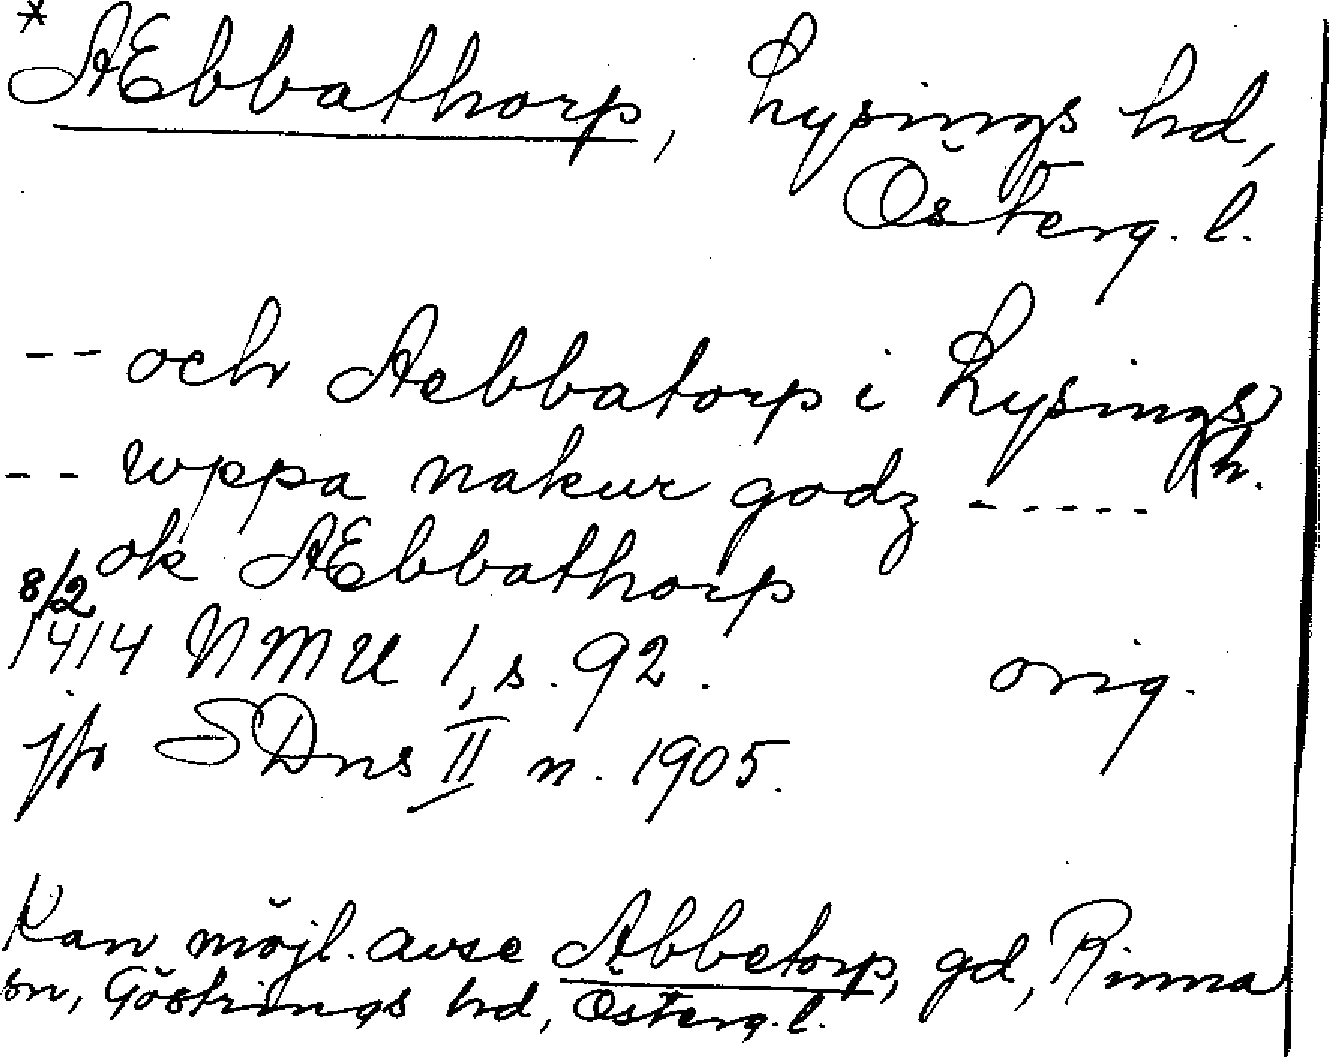 * Æbbathorp, Lysings hd,
Österg. l.
-- och Aebbatorp i Lysings
h.
-- uppa nakur godz -----
ok Æbbathorp
8/2
1414 NMU 1, s. 92. orig.
jfr SDns II n. 1905.
Kan möjl. avse Abbetorp, gd, Rinna
sn, Göstrings hd, Österg. l.